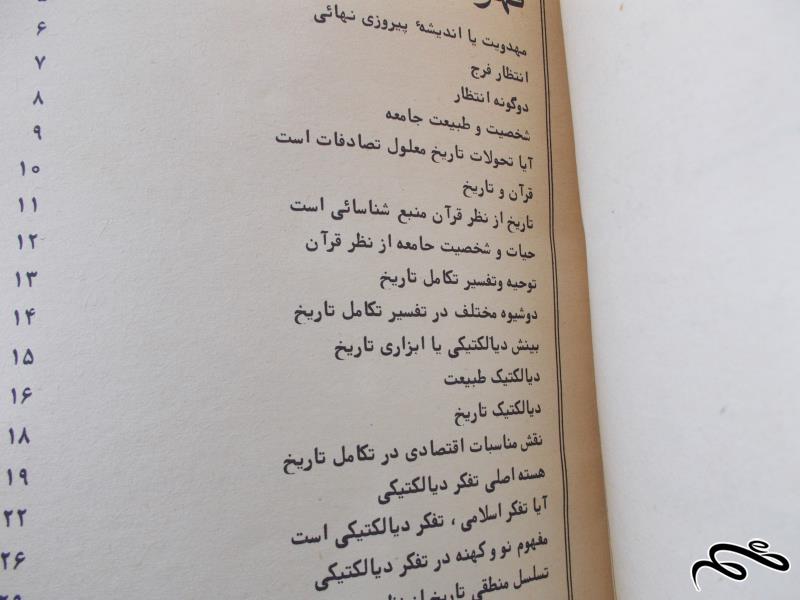 مهدویت یا اندیشهٔ پیروزی نهائی
انتظار فرج ۶
دوگونه انتظار ۷
شخصیت و طبیعت جامعه ۸
آیا تحولات تاریخ معلول تصادفات است ۹
قرآن و تاریخ ۱۰
تاریخ از نظر قرآن منبع شناسائی است ۱۱
حیات و شخصیت حامعه از نظر قرآن ۱۲
توحیه وتفسیر تکامل تاریخ ۱۳
دوشیوه مختلف در تفسیر تکامل تاریخ ۱۴
بینش دیالکتیکی یا ابزاری تاریخ ۱۵
دیالکتیک طبیعت ۱۶
دیالکتیک تاریخ ۱۸
نقش مناسبات اقتصادی در تکامل تاریخ ۱۹
هسته اصلی تفکر دیالکتیکی ۲۲
آیا تفکر اسلامی ، تفکر دیالکتیکی است ۲۶
مفهوم نو و کهنه در تفکر دیالکتیکی
تسلسل منطقی تاریخ از